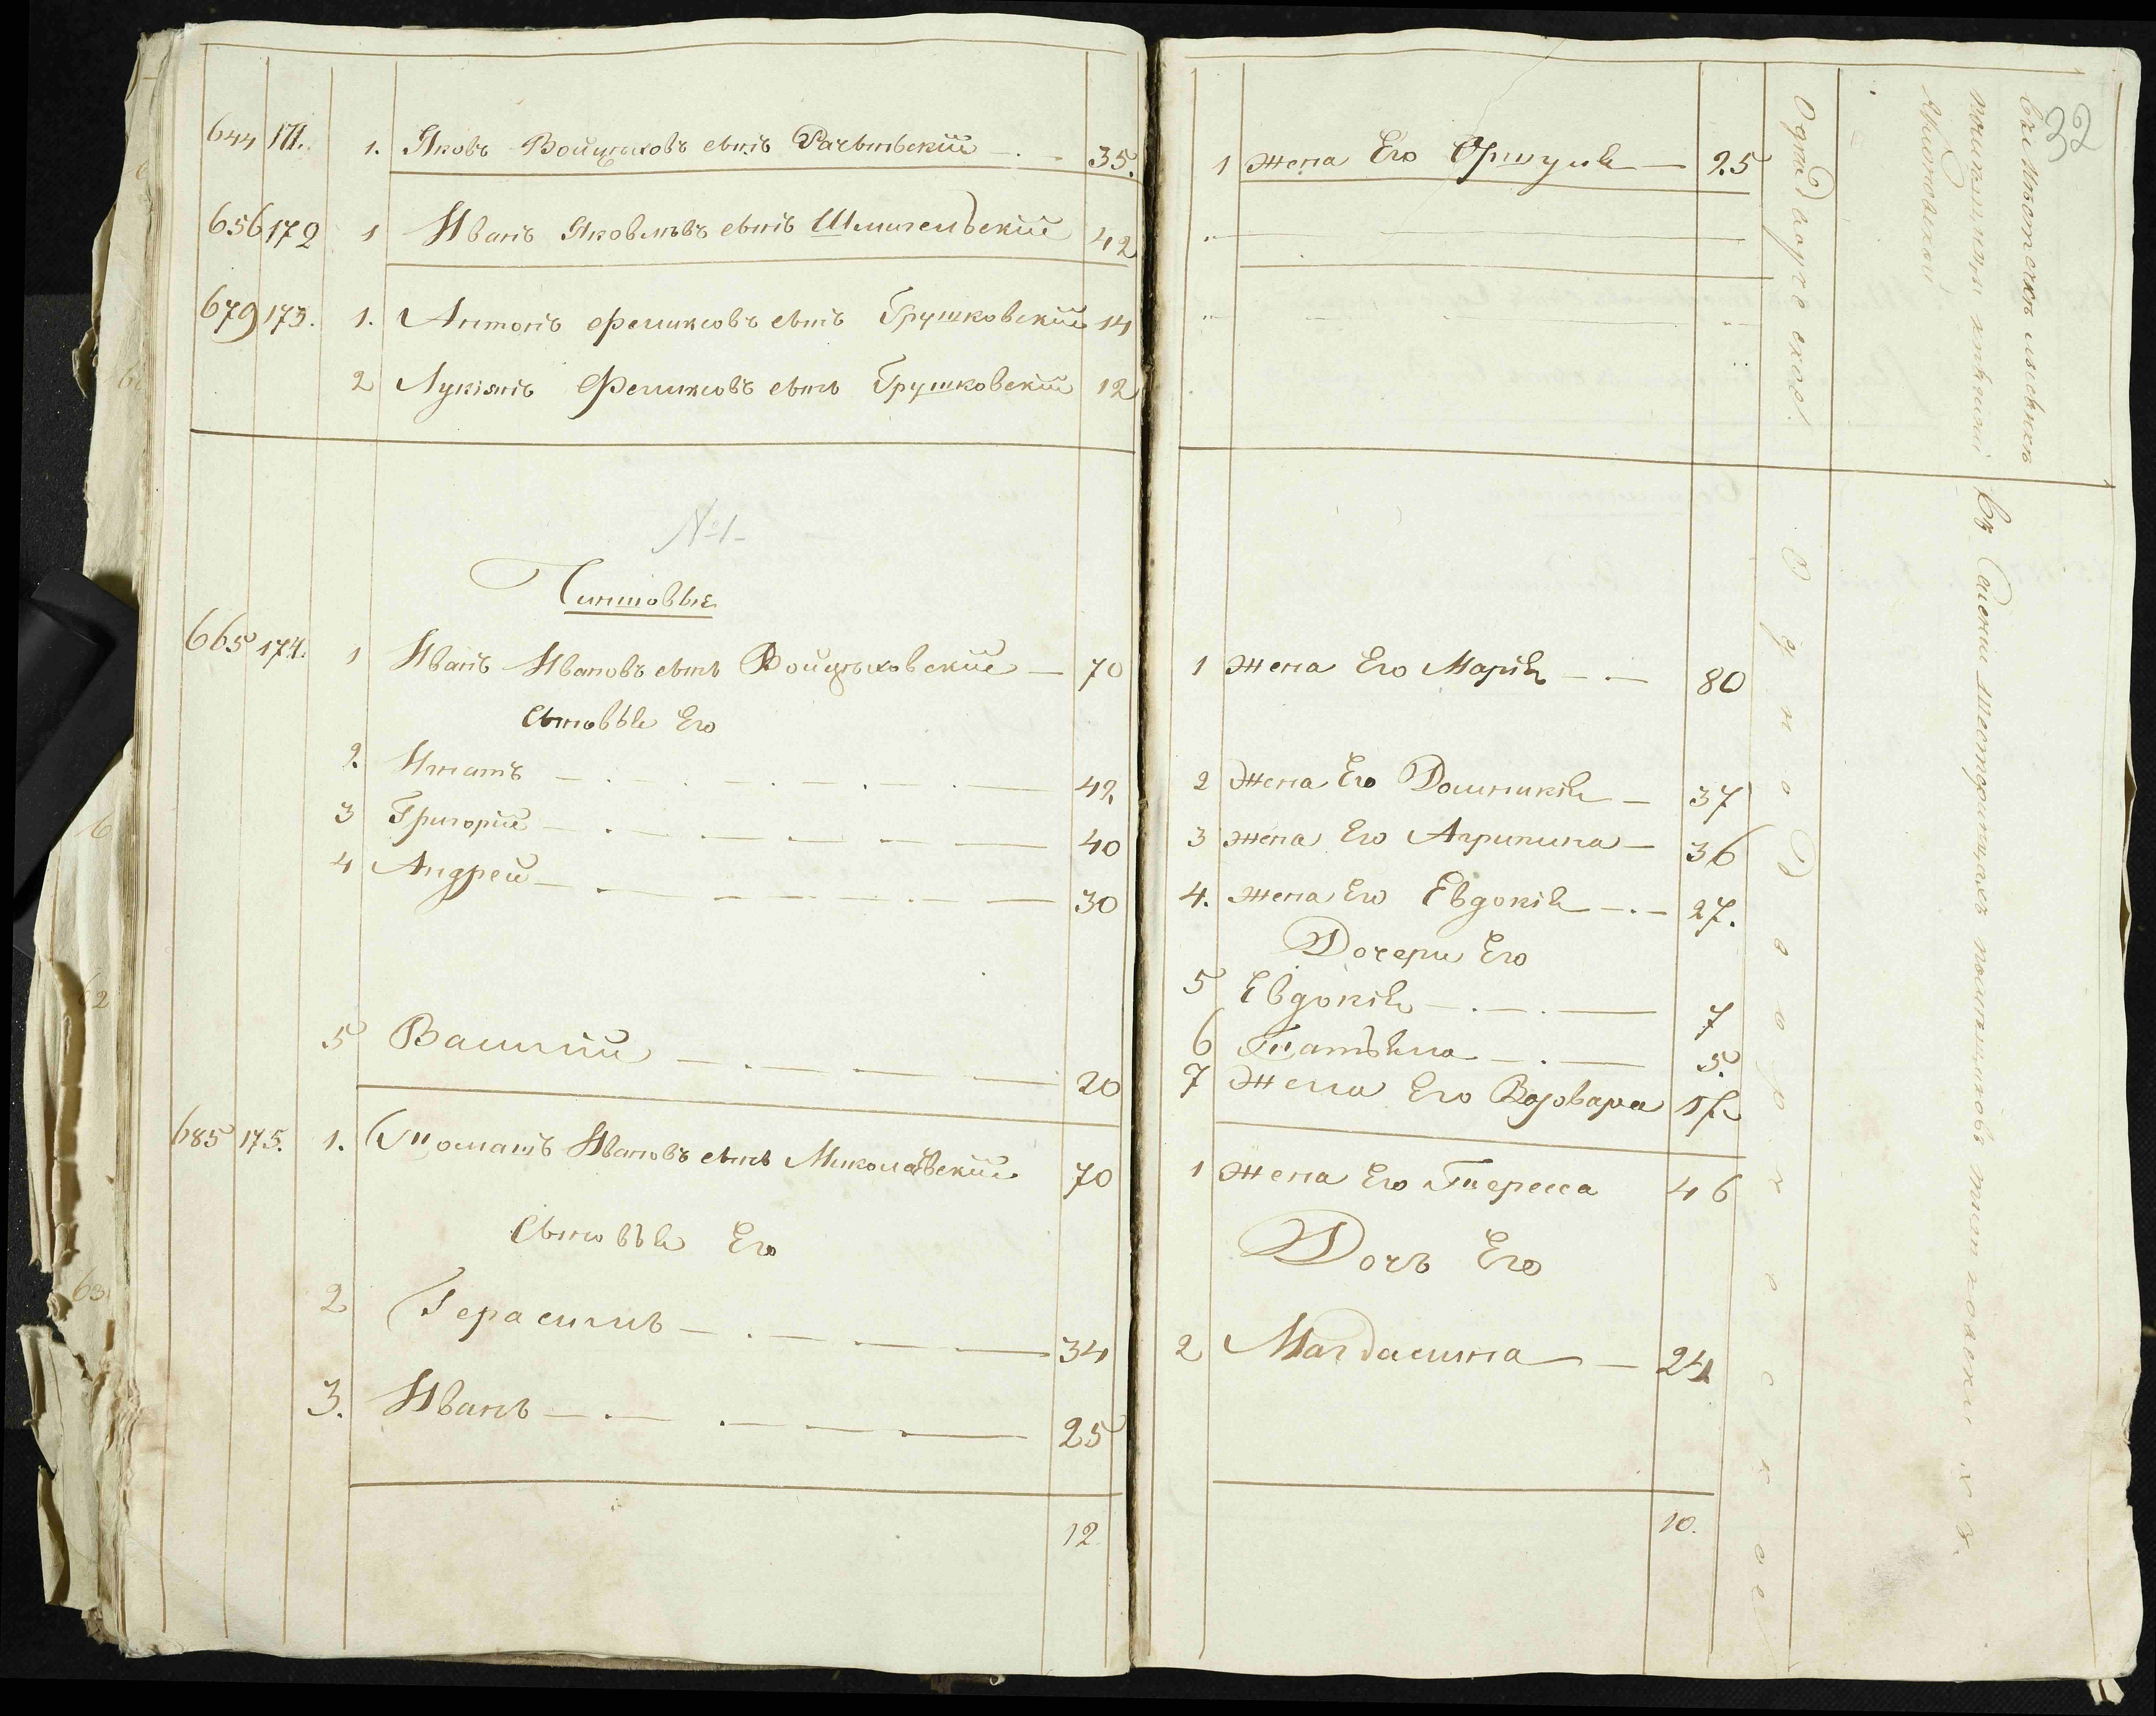 644 171. 1. Яковъ Войцѣховъ сынъ Рачынскій 35.
656 172 1 Иванъ Яковлѣвъ сынъ Шмигельскій 42
679 173. 1. Антонъ Феликсовъ сынъ Грушковскій 14
2 Лукіянъ Феликсовъ сынъ Грушковскій 12
№1
Чиншовые
665 174. 1 Иванъ Ивановъ сынъ Войцѣховскій 70
Сыновья Его
2. Игнатъ 42
3 Григорій 40
4 Андрей 30
5 Василій 20
685 175. 1. Томашъ Ивановъ сынъ Миколаевскій 70
Сыновья Его
2 Герасимъ 34
3. Иванъ 25
12
32
1 жена Его Оршуля 25
1 жена Его Марія 80
2 жена Его Доминикія 37
3 жена Его Агрипина 36
4. жена Его Евдокія 27.
Дочери Его
5 Евдокія 7
6 Татьяна 5.
7 жена Его Варвара 17
1 жена Его Тересса 46
Дочь Его
2 Магдалина 24
10.
Однодворческое
Однодворческое
въ Селеніи помѣщиковъ